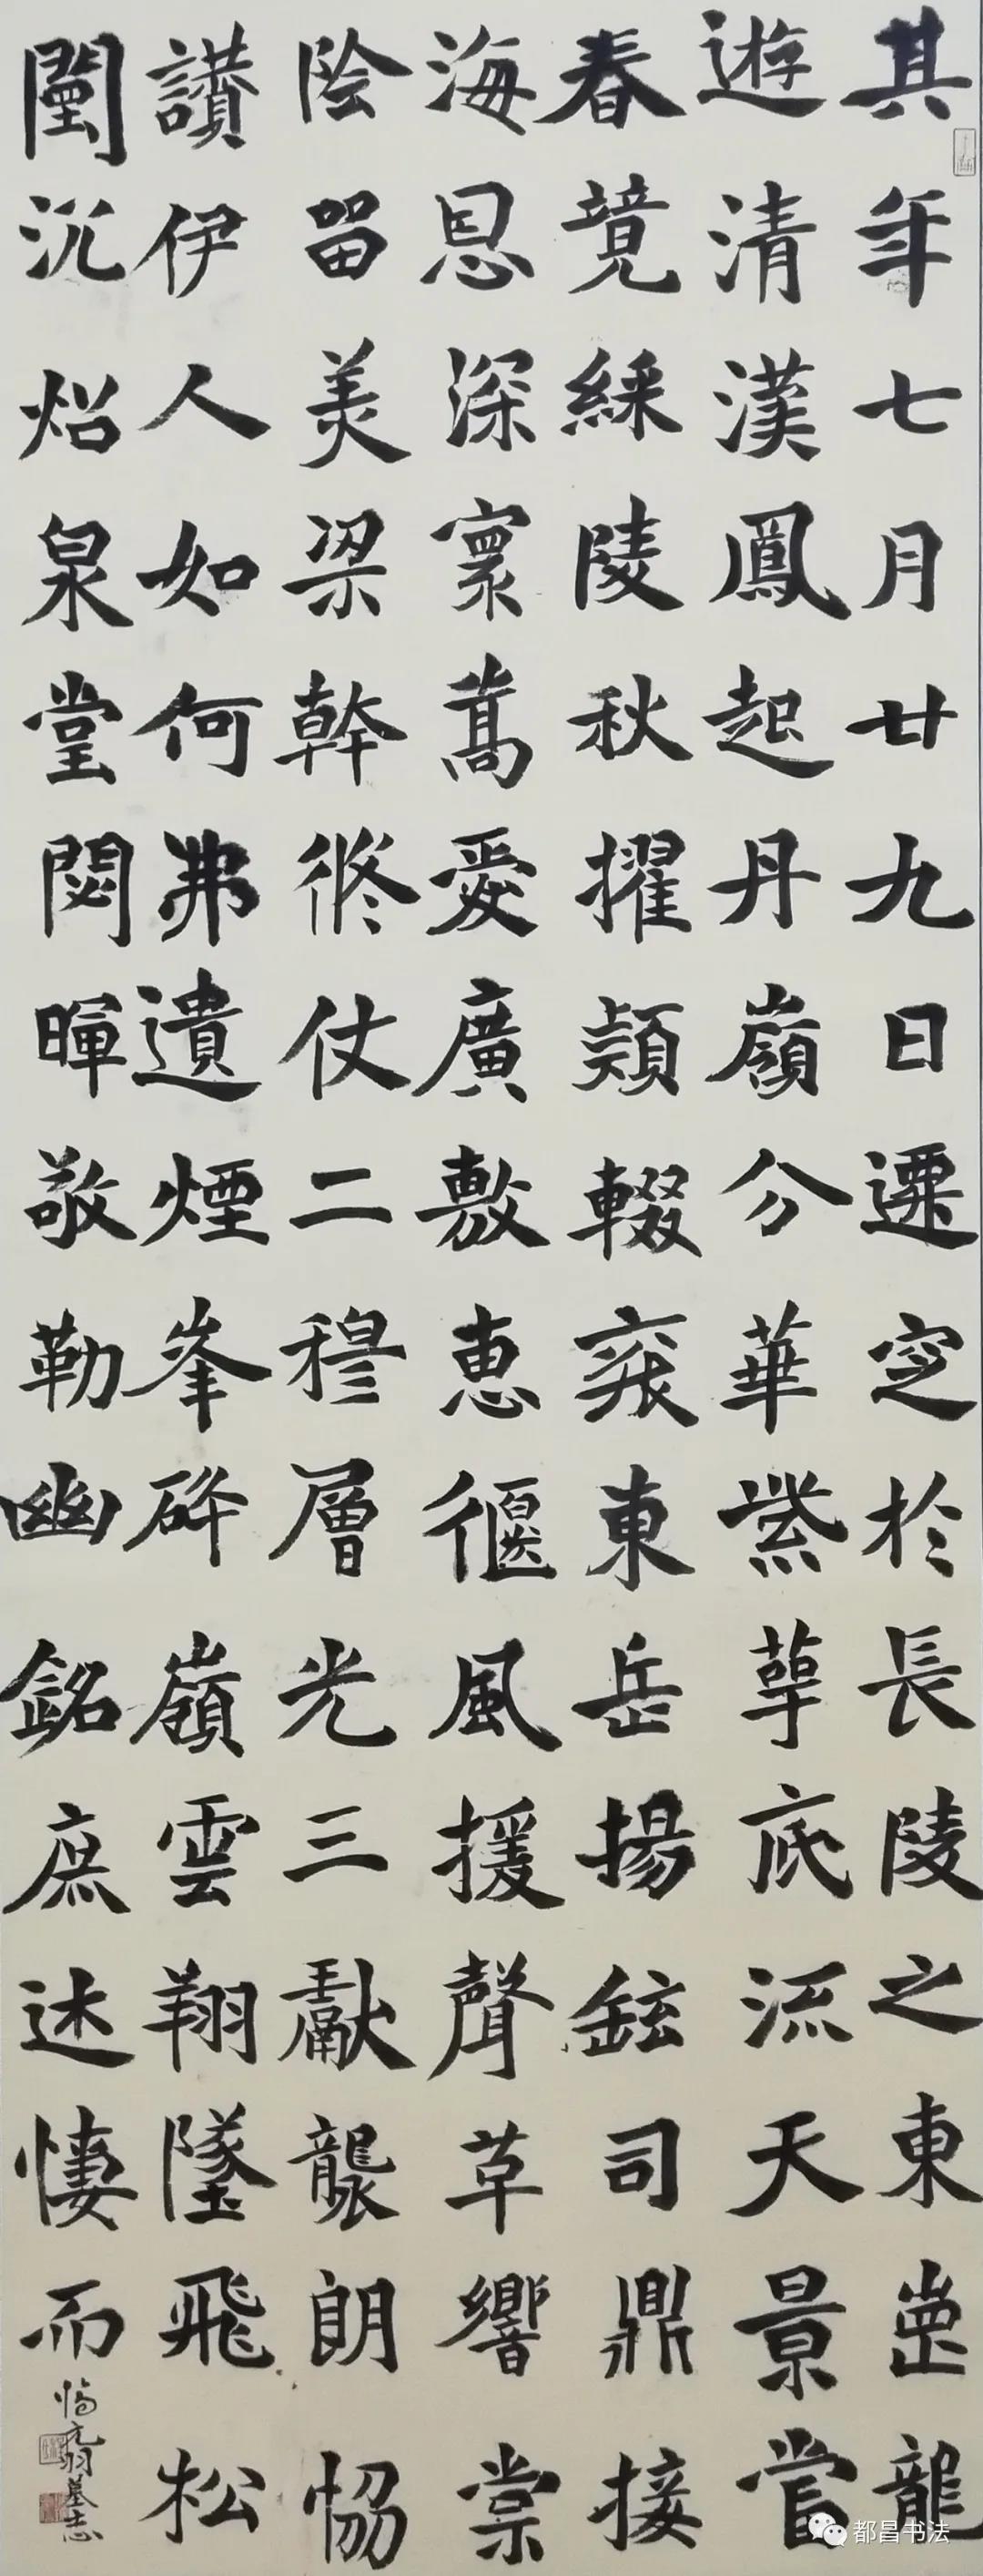 其年七月廿九日遷窆於長陵之東崗龍
遊清漢鳳起丹嶺分華紫萼底流天景當
春競綵陵秋擢穎輟袞東岳揚鉉司鼎接
海恩深寰蒿愛廣敷惠偃風援聲草響棠
陰留美梁幹脩仗二穆層光三獻襲朗協
讚伊人如何弗遺煙峯碎嶺雲翔墜飛松
閨沉炤泉堂閟暉敬勒幽銘庶述悽而
臨元羽墓志
都昌书法